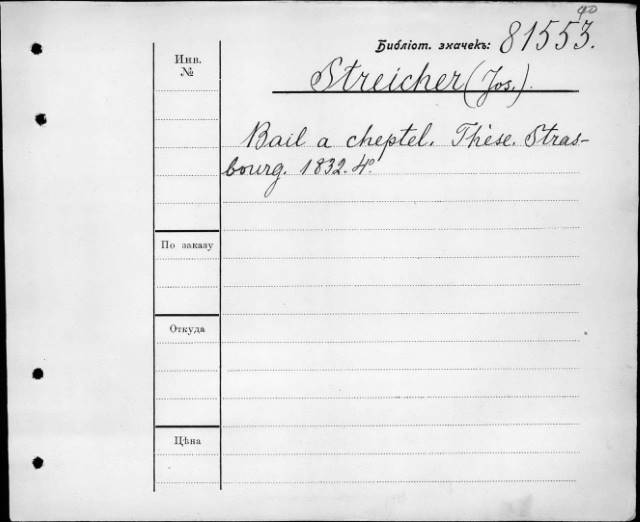 40
Библіот. значекъ: 81553.
Инв.
№
Streicher (Jos.).
Bail a cheptel. Thèse. Stras-
bourg. 1832. 4º.
По заказу
Откуда
Цѣна